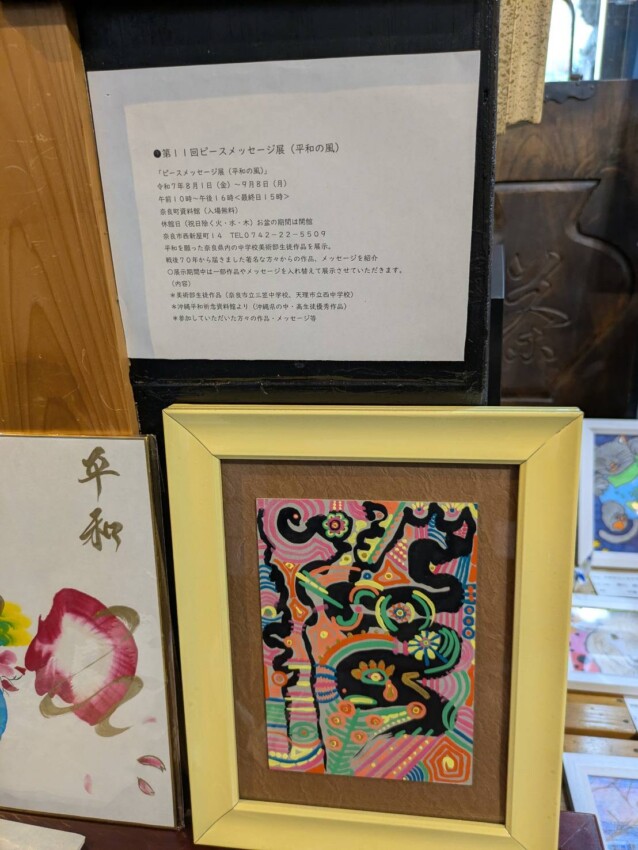 ●第11回ピースメッセージ展（平和の風）
「ピースメッセージ展（平和の風）」
令和7年8月1日（金）～9月8日（月）
午前10時～午後16時＜最終日15時＞
奈良町資料館（入場無料）
休館日（祝日除く火・水・木）お盆の期間は開館
奈良市西新屋町14　TEL0742-22-5509
平和を願った奈良県内の中学校美術部生徒作品を展示。
戦後70年から届きました著名な方々からの作品、メッセージを紹介
○展示期間中は一部作品やメッセージを入れ替えて展示させていただきます。
（内容）
＊美術部生徒作品（奈良市立三笠中学校、天理市立西中学校）
＊沖縄平和祈念資料館より（沖縄県の中・高生徒優秀作品）
＊参加していただいた方々の作品・メッセージ等
茶
平和